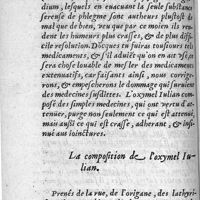 dium, lesquels en euacuant la seule substance
sereuse de phlegme font autheurs plustost de
mal que de bien, veu que par ce moien ils ren
dent les humeurs plus crasses, & de plus diffi
cile resolution. Docques tu fuiras tousiours tels
medicaments, & s'il aduiét qu'on en ait vsé,
sera chose louable de mesler des medicaments
extenuatifs, car faisants ainsi, nous corrige-
rons, & empescherons le dommage qui suruiēt
des medecines susdittes. L'oxymel Iulian com
posé des simples medecines, qui ont vertu d'at
tenuer, purge non seulement ce qui est attenué
mais aussi ce qui est crasse, adherant, & infi-
nué aux ioinctures.
La composition de l'oxymel Iu-
lian.
Prenés de la rue, de l'origane, des lathyri-